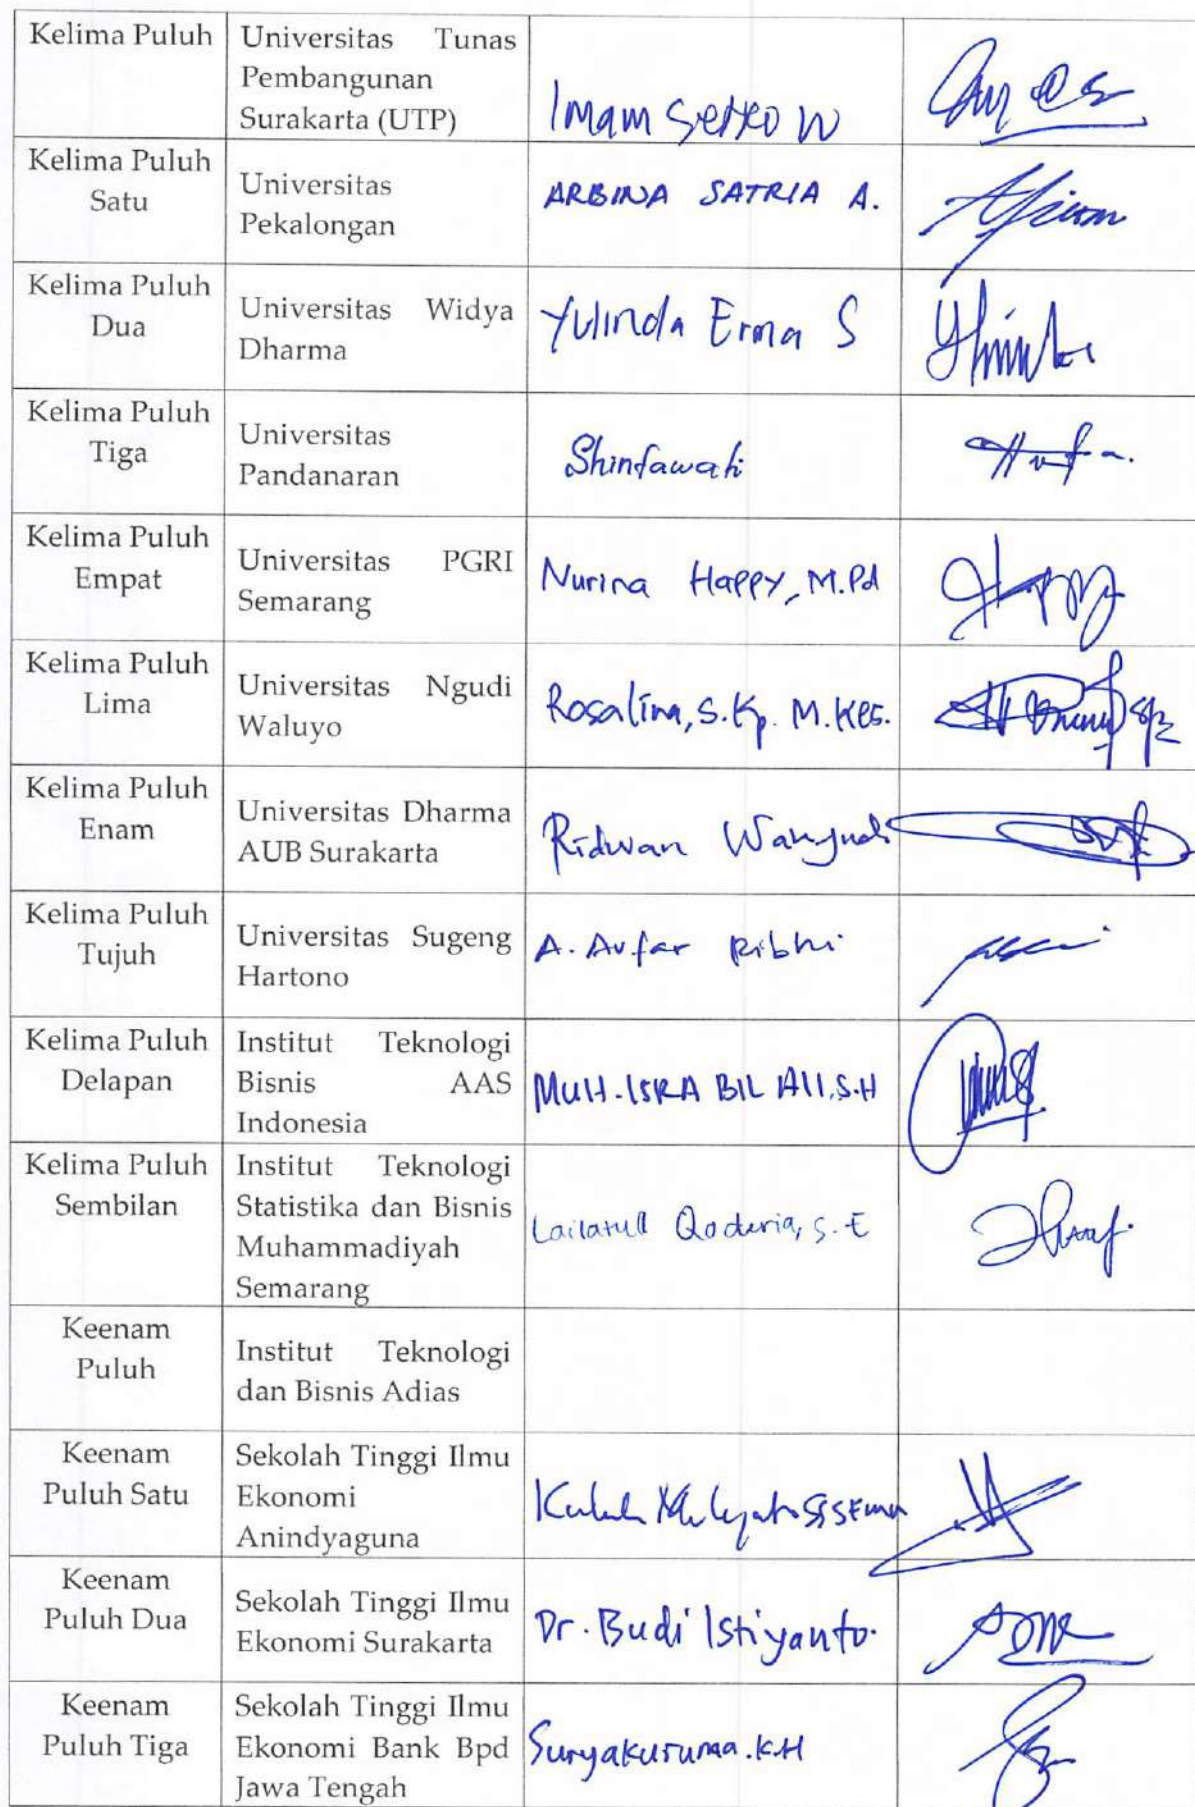 Kelima Puluh
Universitas Tunas
Pembangunan
Surakarta (UTP)
Imam Setyo W
Kelima Puluh
Satu
Universitas
Pekalongan
ARBINA SATRIA A.
Kelima Puluh
Dua
Universitas Widya
Dharma
Yulinda Erma S
Kelima Puluh
Tiga
Universitas
Pandanaran
Shintawati
Kelima Puluh
Empat
Universitas PGRI
Semarang
Nurina Happy, M.Pd
Kelima Puluh
Lima
Universitas Ngudi
Waluyo
Rosalina, S.Kp. M.Kes.
Kelima Puluh
Enam
Universitas Dharma
AUB Surakarta
Ridwan
Kelima Puluh
Tujuh
Universitas Sugeng
Hartono
A. Aufar Ribhi
Kelima Puluh
Delapan
Institut Teknologi
Bisnis AAS
Indonesia
MUH. ISRA BIL ALI, S.H
Kelima Puluh
Sembilan
Institut Teknologi
Statistika dan Bisnis
Muhammadiyah
Semarang
Lailatull Qoderia, S.E
Keenam
Puluh
Institut Teknologi
dan Bisnis Adias
Keenam
Puluh Satu
Sekolah Tinggi Ilmu
Ekonomi
Anindyaguna
Keenam
Puluh Dua
Sekolah Tinggi Ilmu
Ekonomi Surakarta
Dr. Budi Istiyanto.
Keenam
Puluh Tiga
Sekolah Tinggi Ilmu
Ekonomi Bank Bpd
Jawa Tengah
Suryakusuma.K.H